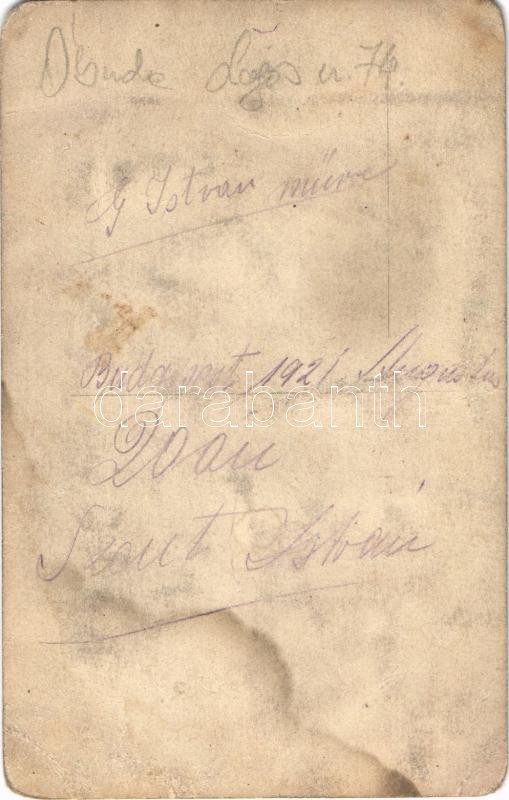 Óbuda Lajos u. 74.
ifj István műve
Budapest, 1921. Augusztus
darabanth
20 án
Szent István